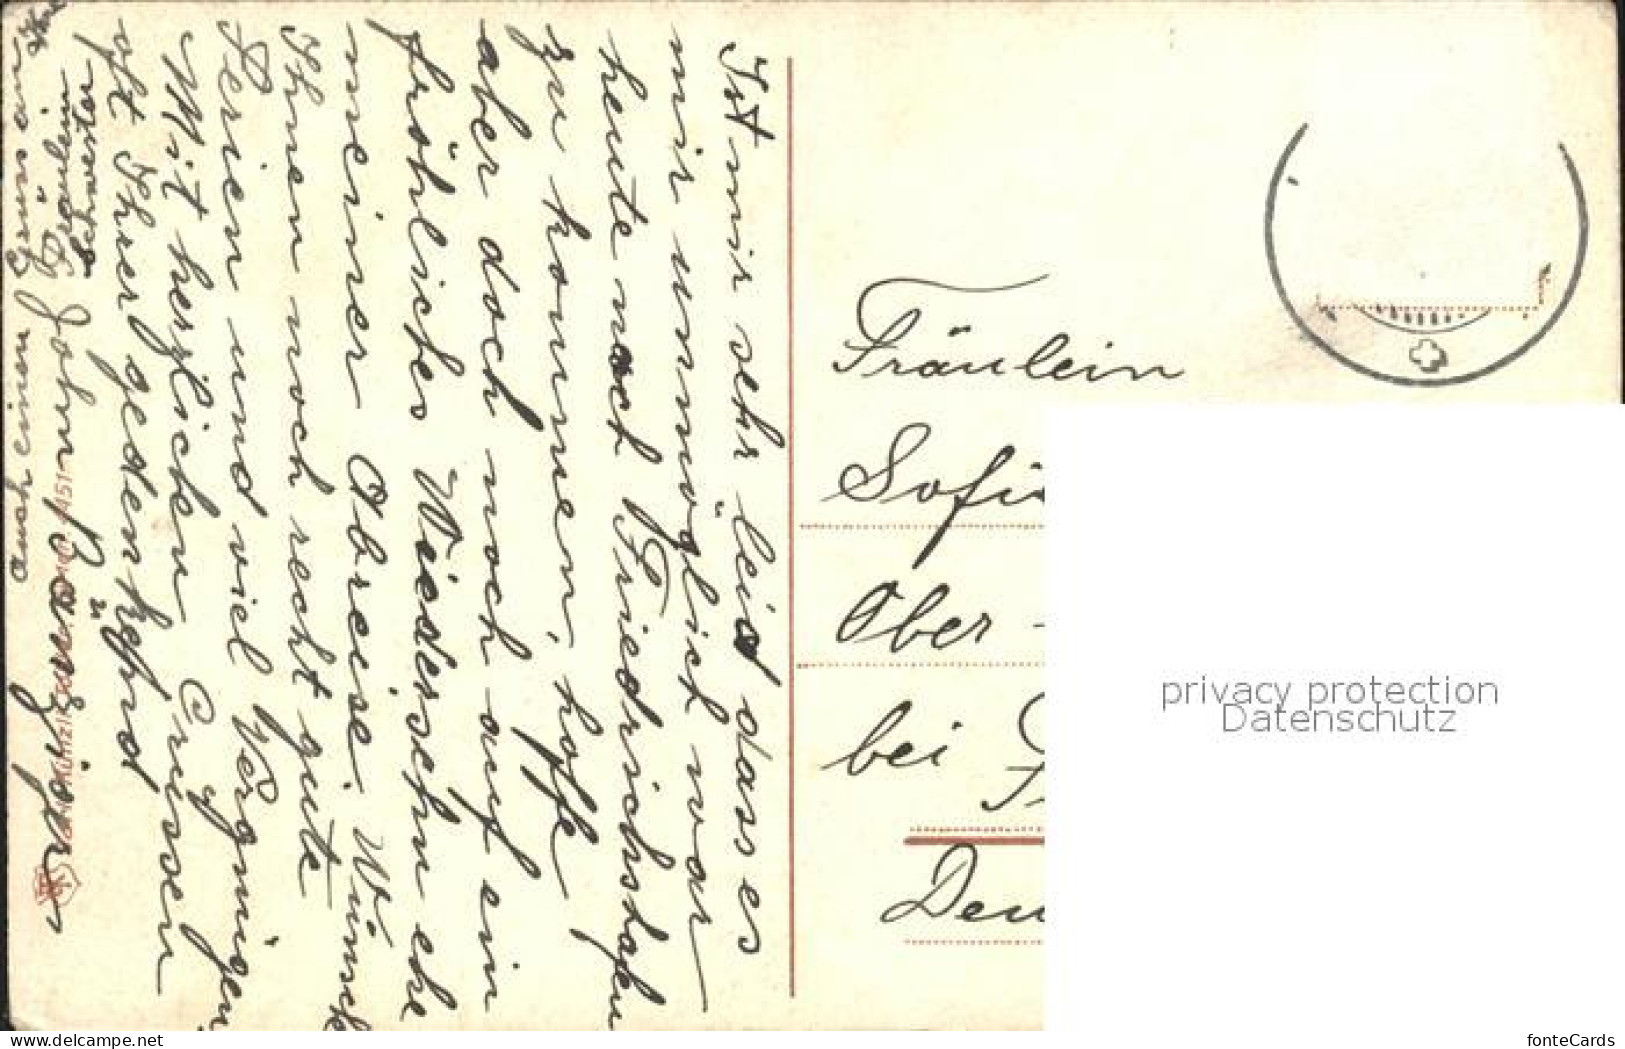 Ist mir sehr leid dass es
mir unmöglich war
heute noch Friedrichshafen
zu kommen, hoffe
aber doch noch auf ein
fröhliches Wiedersehn ehe
meiner Abreise. Wünsch
Ihnen noch recht gute
Ferien und viel Vergnügen
Mit herzlichen Grüssen
oft Ihrer gedenkend
auch einen Gruss an
Fräulein
Schwester
Fräulein
Sofi
Ober -
bei
Deu
privacy protection
Datenschutz
www.delcampe.net
fonteCards